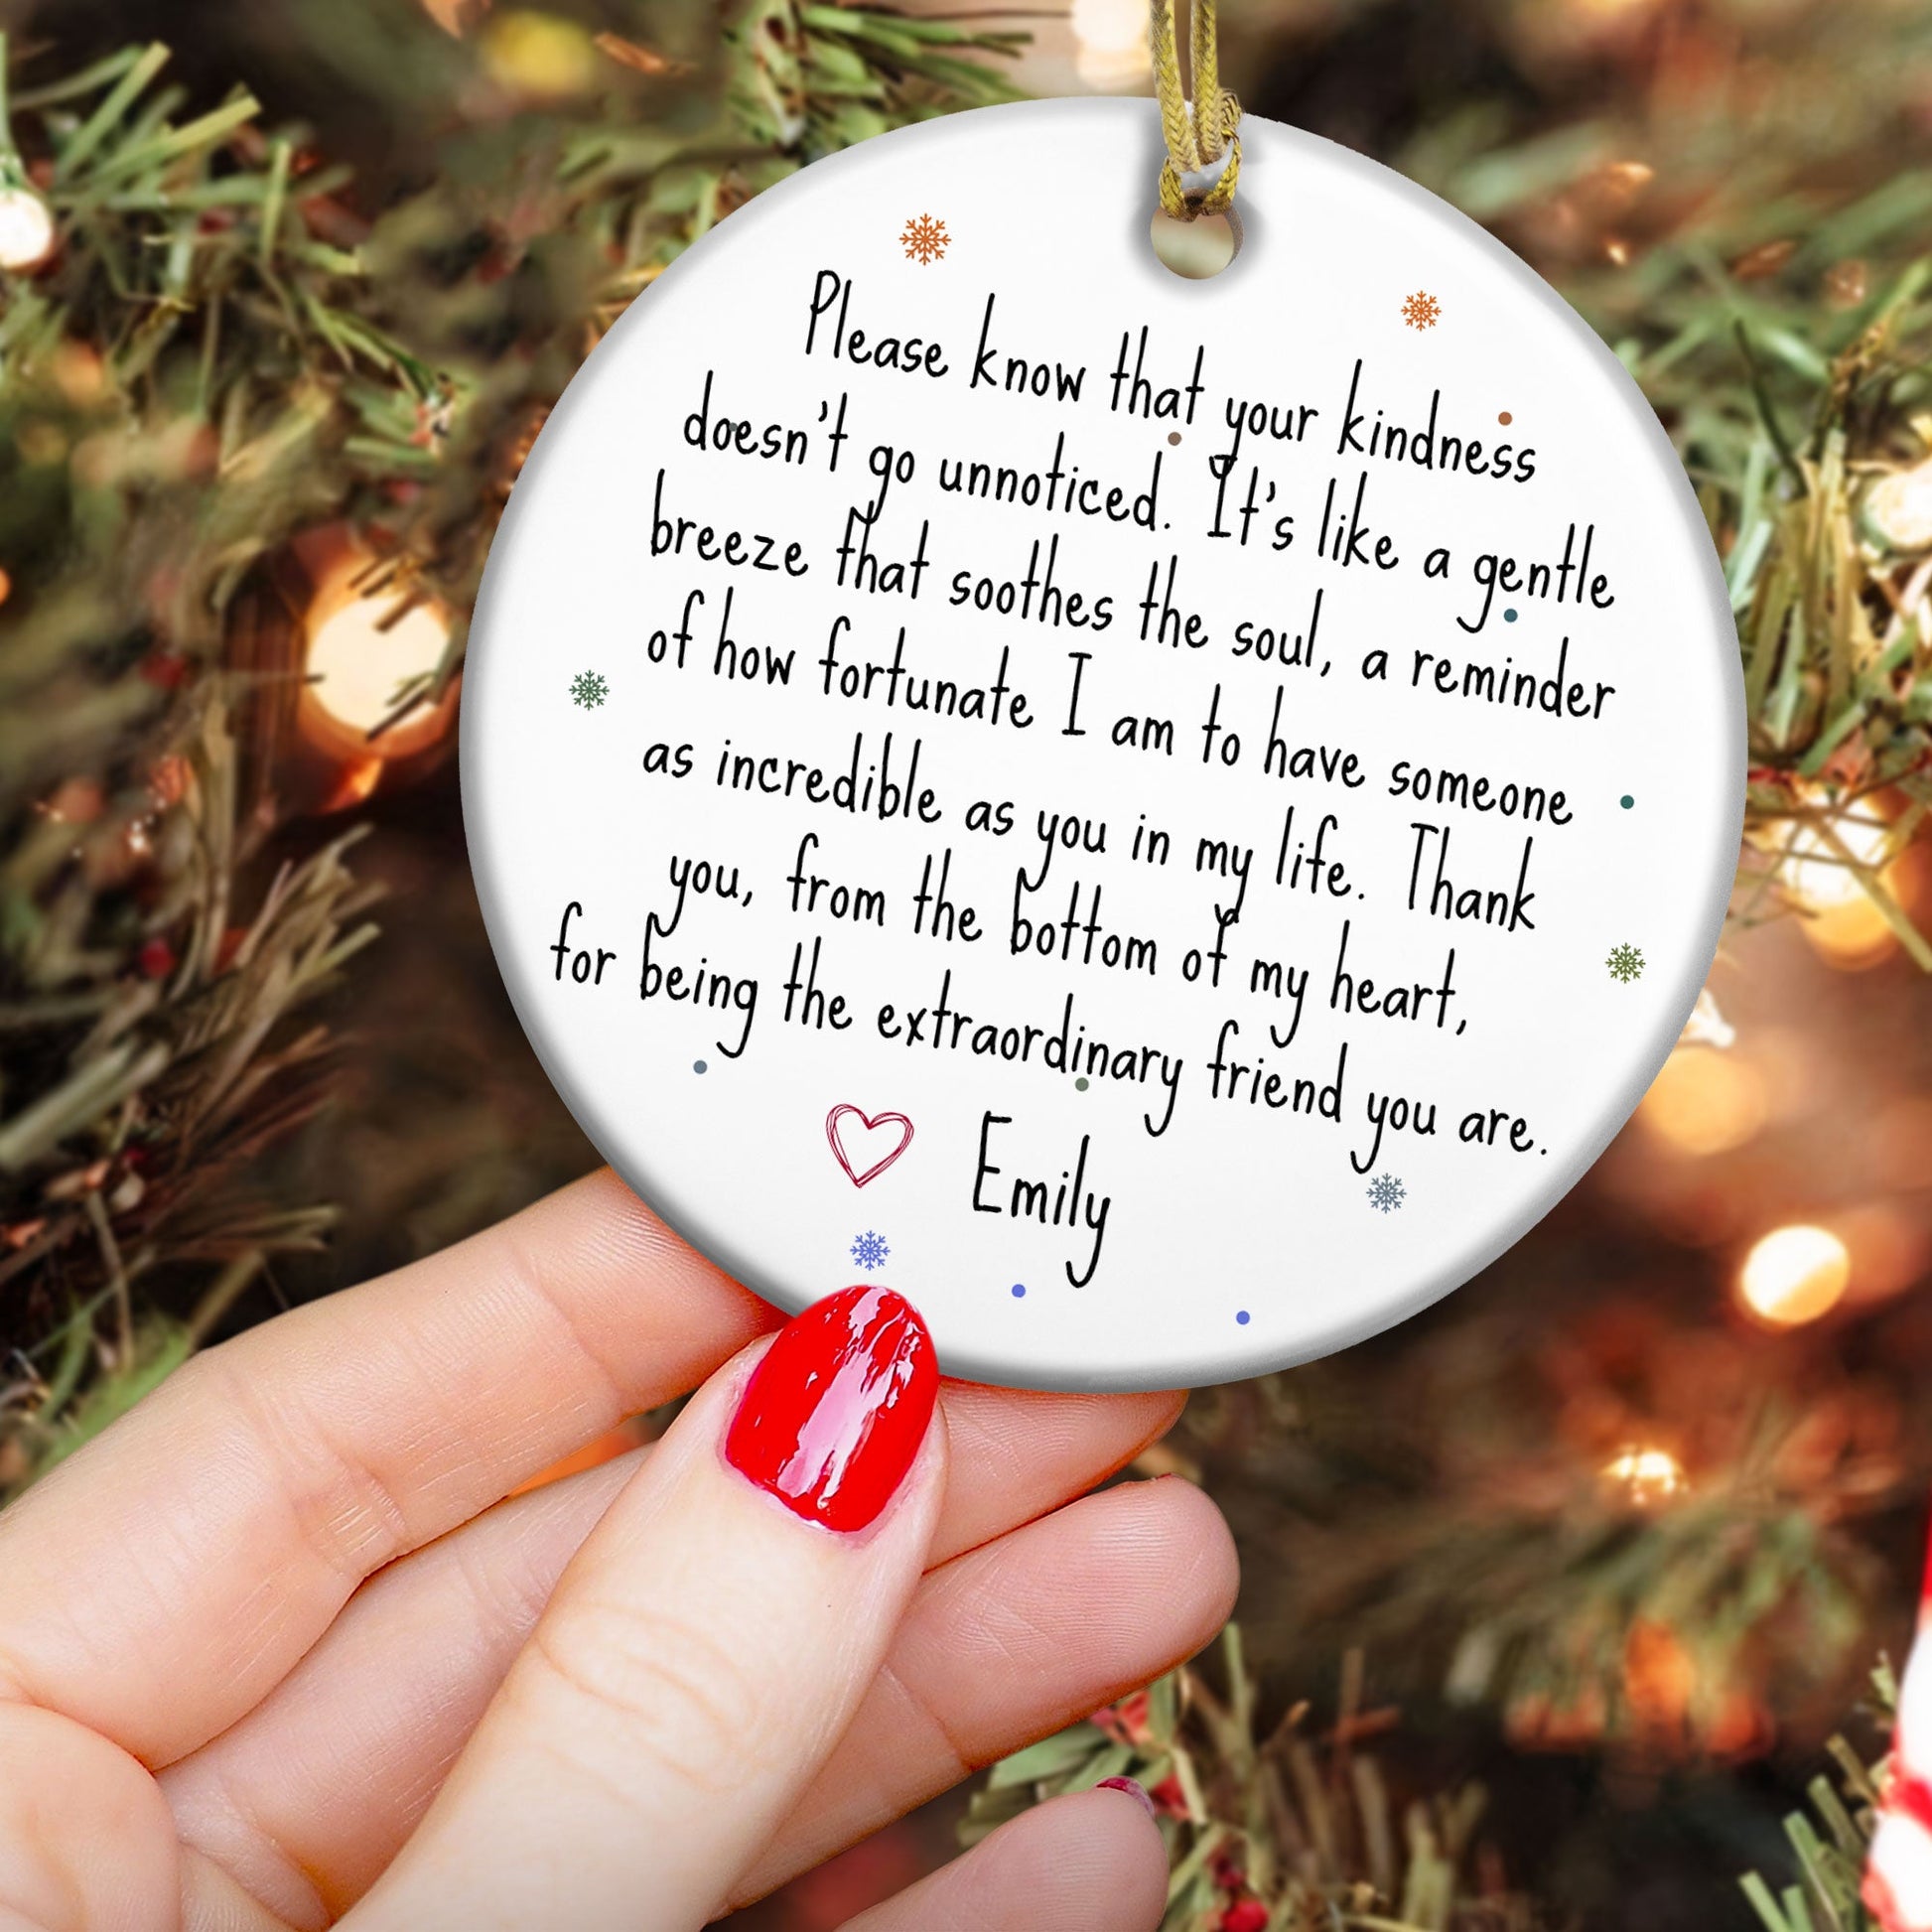 Please know that your kindness
doesn't go unnoticed. It's like a gentle
breeze that soothes the soul, a reminder
of how fortunate I am to have someone
as incredible as you in my life. Thank
you, from the bottom of my heart,
for being the extraordinary friend you are.
Emily